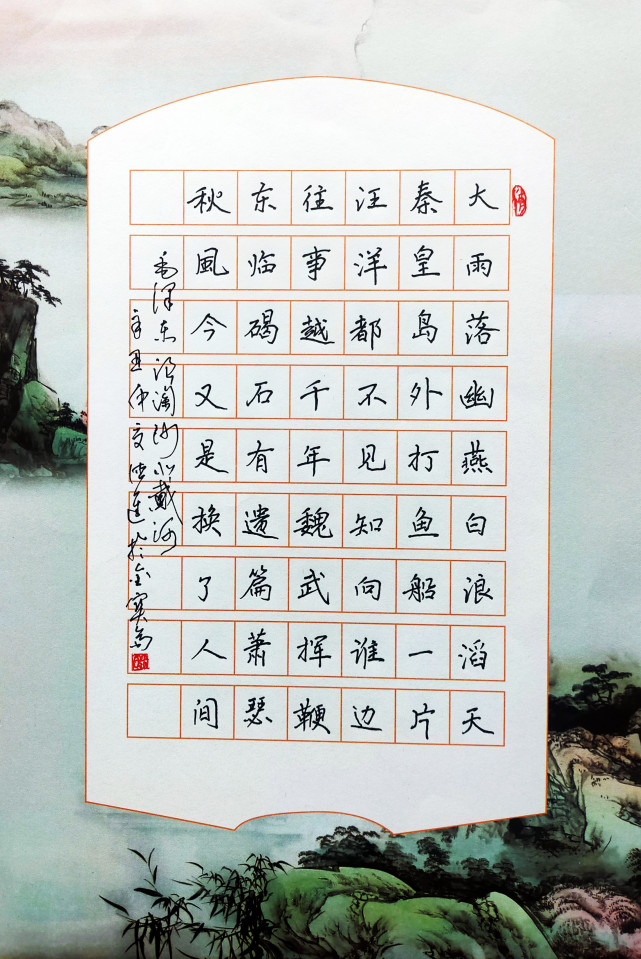 大雨落幽燕白浪滔天
秦皇岛外打鱼船一片
汪洋都不见知向谁边
往事越千年魏武挥鞭
东临碣石有遗篇萧瑟
秋風今又是换了人间
毛泽东浪淘沙北戴河
辛丑仲夏